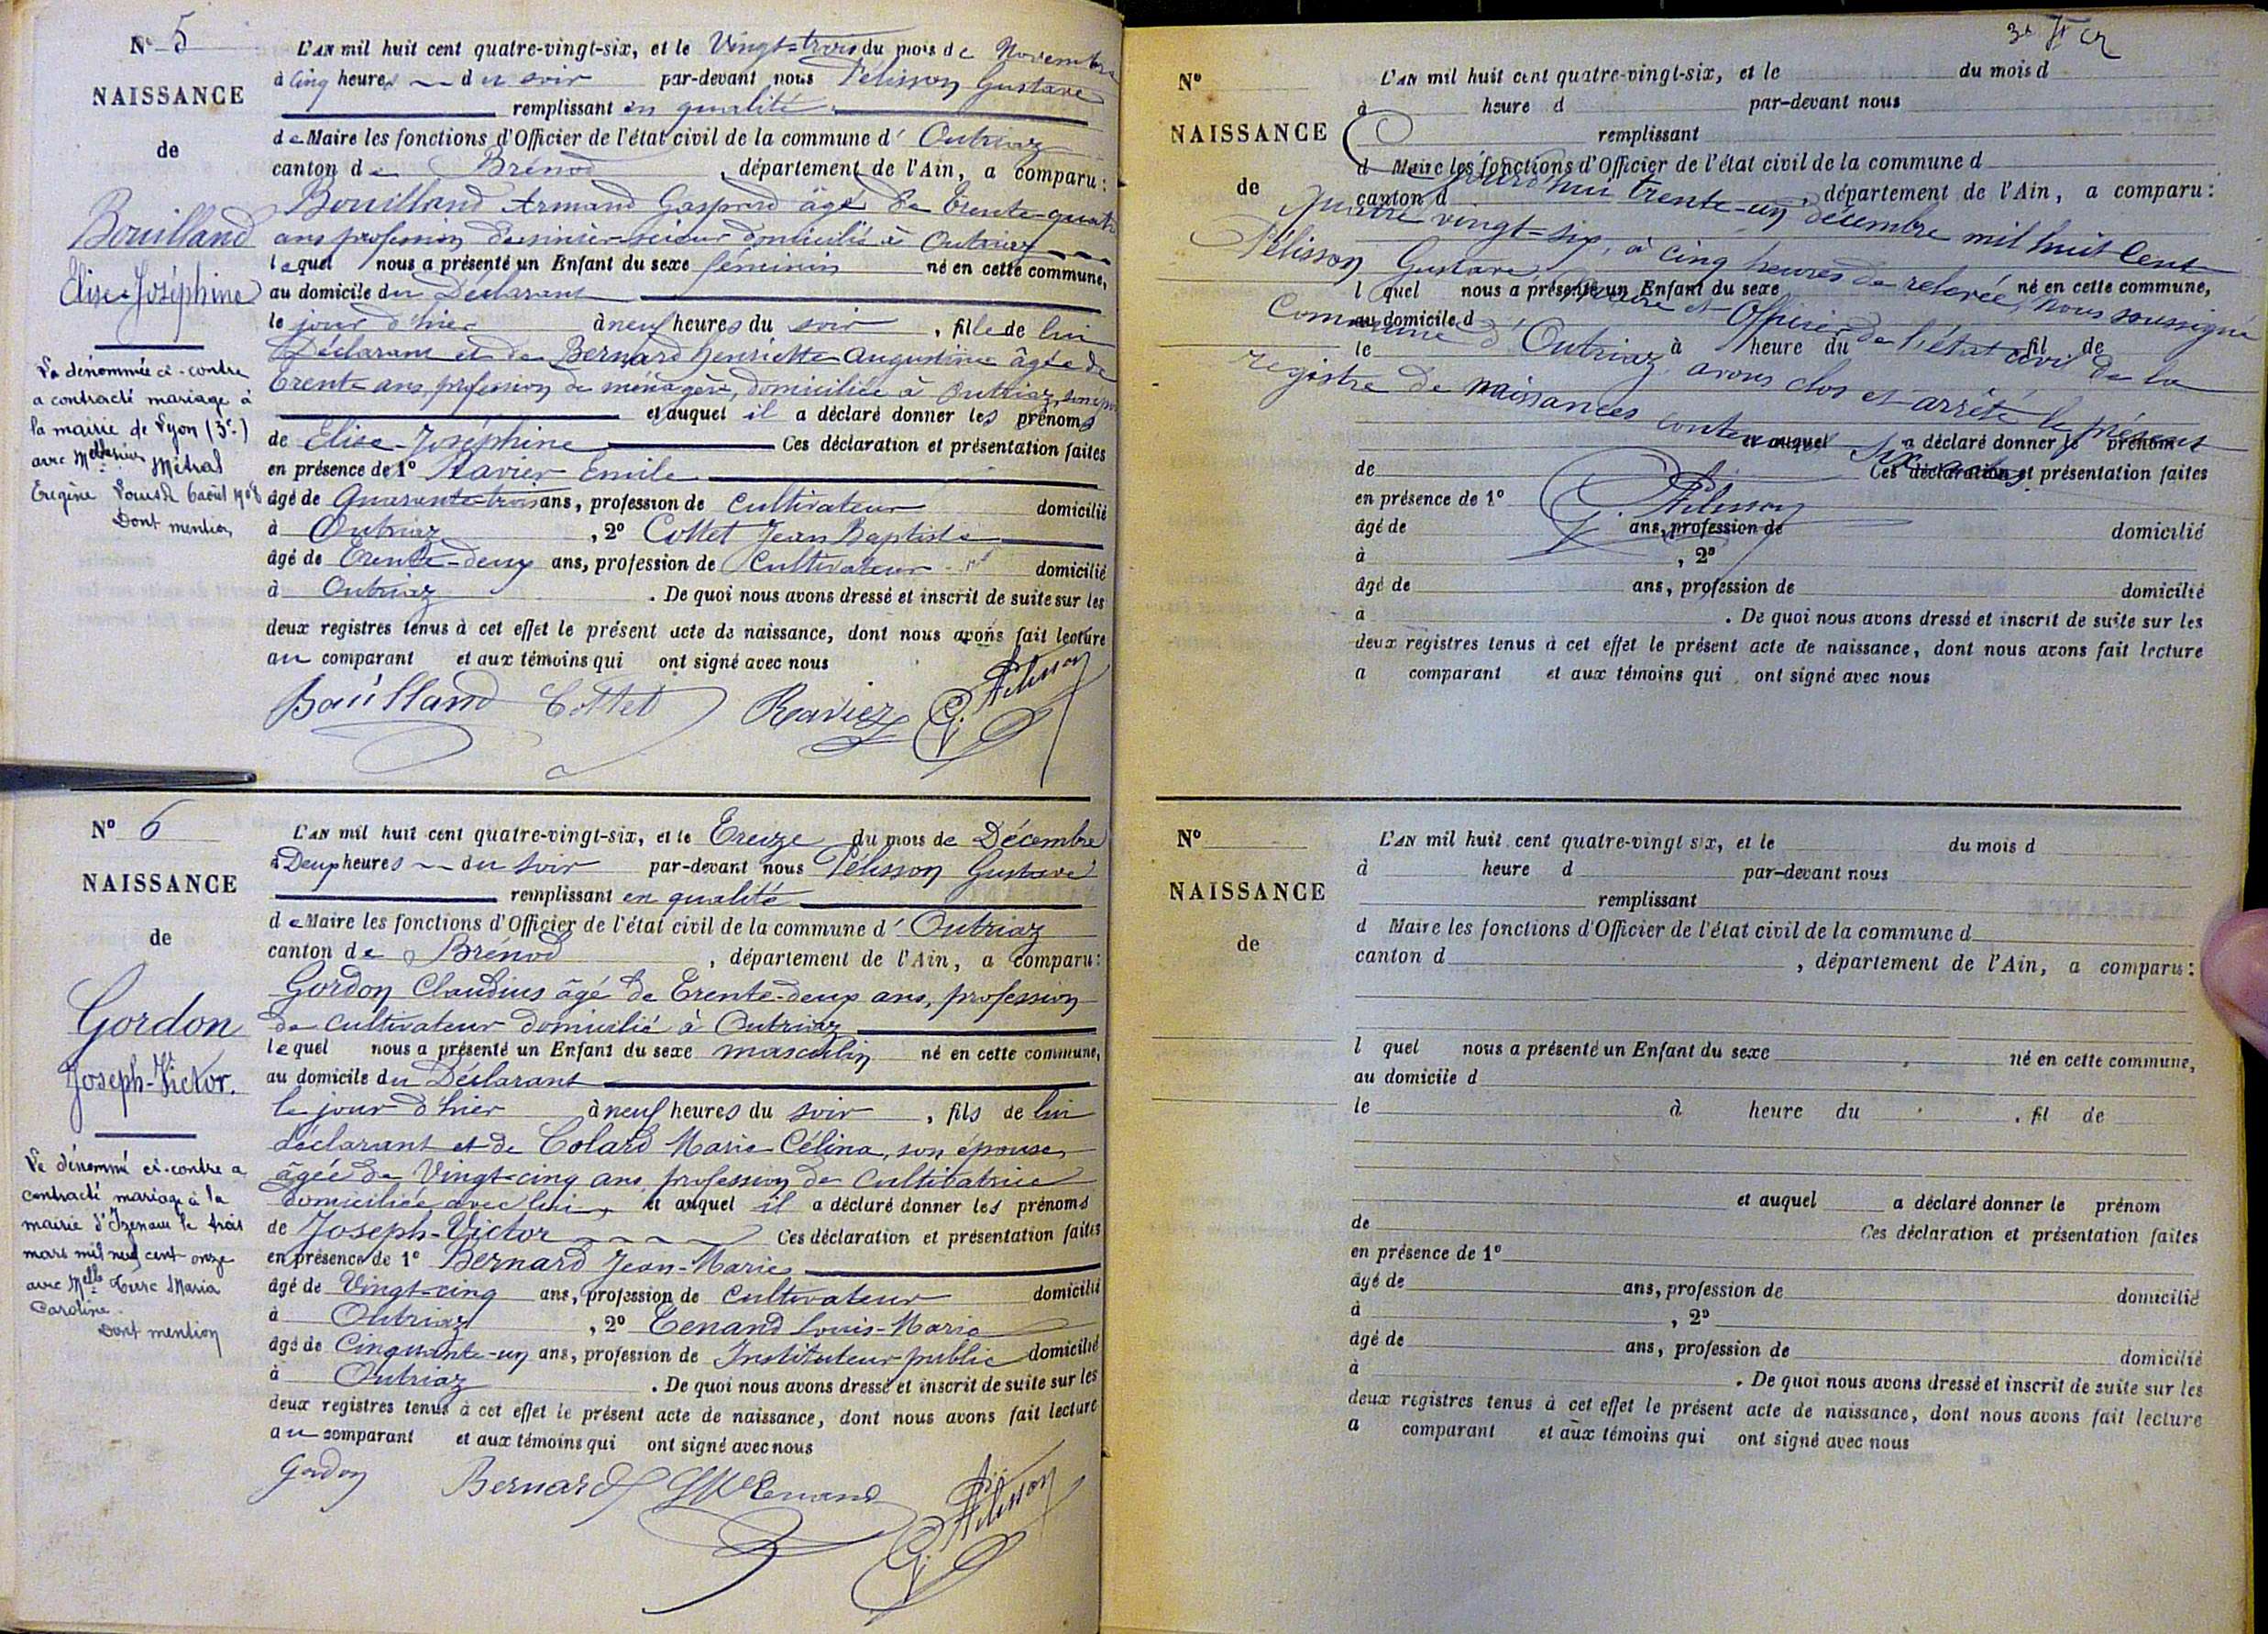 N° 5
NAISSANCE
de
Bouilland
Elise-Joséphine
La dénommée ci-contre
a contracté mariage à
la mairie de Lyon (3e)
avec Métral
6 août 1908
Dont mention
L'AN mil huit cent quatre-vingt-six, et le Vingt-trois du mois de Novembre
à Cinq heures du soir par-devant nous Pélisson Gustave
remplissant en qualité
de Maire les fonctions d'Officier de l'état civil de la commune d' Outriaz
canton de Brénod, département de l'Ain, a comparu:
Bouilland Armand Gaspard âgé de Trente-quatre
ans profession de scieur domicilié à Outriaz
lequel nous a présenté un Enfant du sexe féminin né en cette commune,
au domicile du Déclarant
le jour d'hier à neuf heures du soir, fille de lui
Déclarant et de Bernard Henriette Augustine âgée de
Trente ans, profession de ménagère, domiciliée à Outriaz, son
et auquel il a déclaré donner les prénoms
de Elise-Joséphine Ces déclaration et présentation faites
en présence de 1° Ravier Emile
âgé de Quarante-trois ans, profession de Cultivateur domicilié
à Outriaz, 2° Cottet Jean Baptiste
âgé de Trente-deux ans, profession de Cultivateur domicilié
à Outriaz. De quoi nous avons dressé et inscrit de suite sur les
deux registres tenus à cet effet le présent acte de naissance, dont nous avons fait lecture
au comparant et aux témoins qui ont signé avec nous
Bouilland Cottet Ravier G. Pélisson
N° 6
NAISSANCE
de
Gordon
Joseph-Victor.
Le dénommé ci-contre a
contracté mariage à la
mairie d'Izenave le trois
mars mil neuf cent onze
avec Melle Maria
Caroline.
Dont mention
L'AN mil huit cent quatre-vingt-six, et le Treize du mois de Décembre
à Deux heures du soir par-devant nous Pélisson Gustave
remplissant en qualité
de Maire les fonctions d'Officier de l'état civil de la commune d' Outriaz
canton de Brénod, département de l'Ain, a comparu:
Gordon Claudius âgé de Trente-deux ans, profession
de cultivateur domicilié à Outriaz
lequel nous a présenté un Enfant du sexe masculin né en cette commune,
au domicile du Déclarant
le jour d'hier à neuf heures du soir, fils de lui
déclarant et de Colard Marie Célina, son épouse,
âgée de Vingt-cinq ans profession de Cultivatrice
domiciliée avec lui, et auquel il a déclaré donner les prénoms
de Joseph-Victor Ces déclaration et présentation faites
en présence de 1° Bernard Jean-Marie
âgé de Vingt-cinq ans, profession de Cultivateur domicilié
à Outriaz, 2° Tenand Louis-Marie
âgé de Cinquante-un ans, profession de Instituteur public domicilié
à Outriaz. De quoi nous avons dressé et inscrit de suite sur les
deux registres tenus à cet effet le présent acte de naissance, dont nous avons fait lecture
au comparant et aux témoins qui ont signé avec nous
Gordon Bernard Tenand G. Pélisson
N°
NAISSANCE
de
L'AN mil huit cent quatre-vingt-six, et le du mois d
à heure d par-devant nous
remplissant
d Maire les fonctions d'Officier de l'état civil de la commune d
canton d, département de l'Ain, a comparu:
l quel nous a présenté un Enfant du sexe né en cette commune,
au domicile d
le à heure du fil de
et auquel a déclaré donner le prénom
de Ces déclaration et présentation faites
en présence de 1°
âgé de ans, profession de domicilié
à, 2°
âgé de ans, profession de domicilié
à. De quoi nous avons dressé et inscrit de suite sur les
deux registres tenus à cet effet le présent acte de naissance, dont nous avons fait lecture
a comparant et aux témoins qui ont signé avec nous
Ce jourd'hui trente-un décembre mil huit cent
quatre vingt-six, à cinq heures de relevée, nous soussigné
Pélisson Gustave Maire et Officier de l'état civil de la
Commune d'Outriaz, avons clos et arrêté le présent
registre de naissances contenant six actes.
G. Pélisson
N°
NAISSANCE
de
L'AN mil huit cent quatre-vingt six, et le du mois d
à heure d par-devant nous
remplissant
d Maire les fonctions d'Officier de l'état civil de la commune d
canton d, département de l'Ain, a comparu:
l quel nous a présenté un Enfant du sexe né en cette commune,
au domicile d
le à heure du. fil de
et auquel a déclaré donner le prénom
de Ces déclaration et présentation faites
en présence de 1°
âgé de ans, profession de domicilié
à, 2°
âgé de ans, profession de domicilié
à. De quoi nous avons dressé et inscrit de suite sur les
deux registres tenus à cet effet le présent acte de naissance, dont nous avons fait lecture
a comparant et aux témoins qui ont signé avec nous